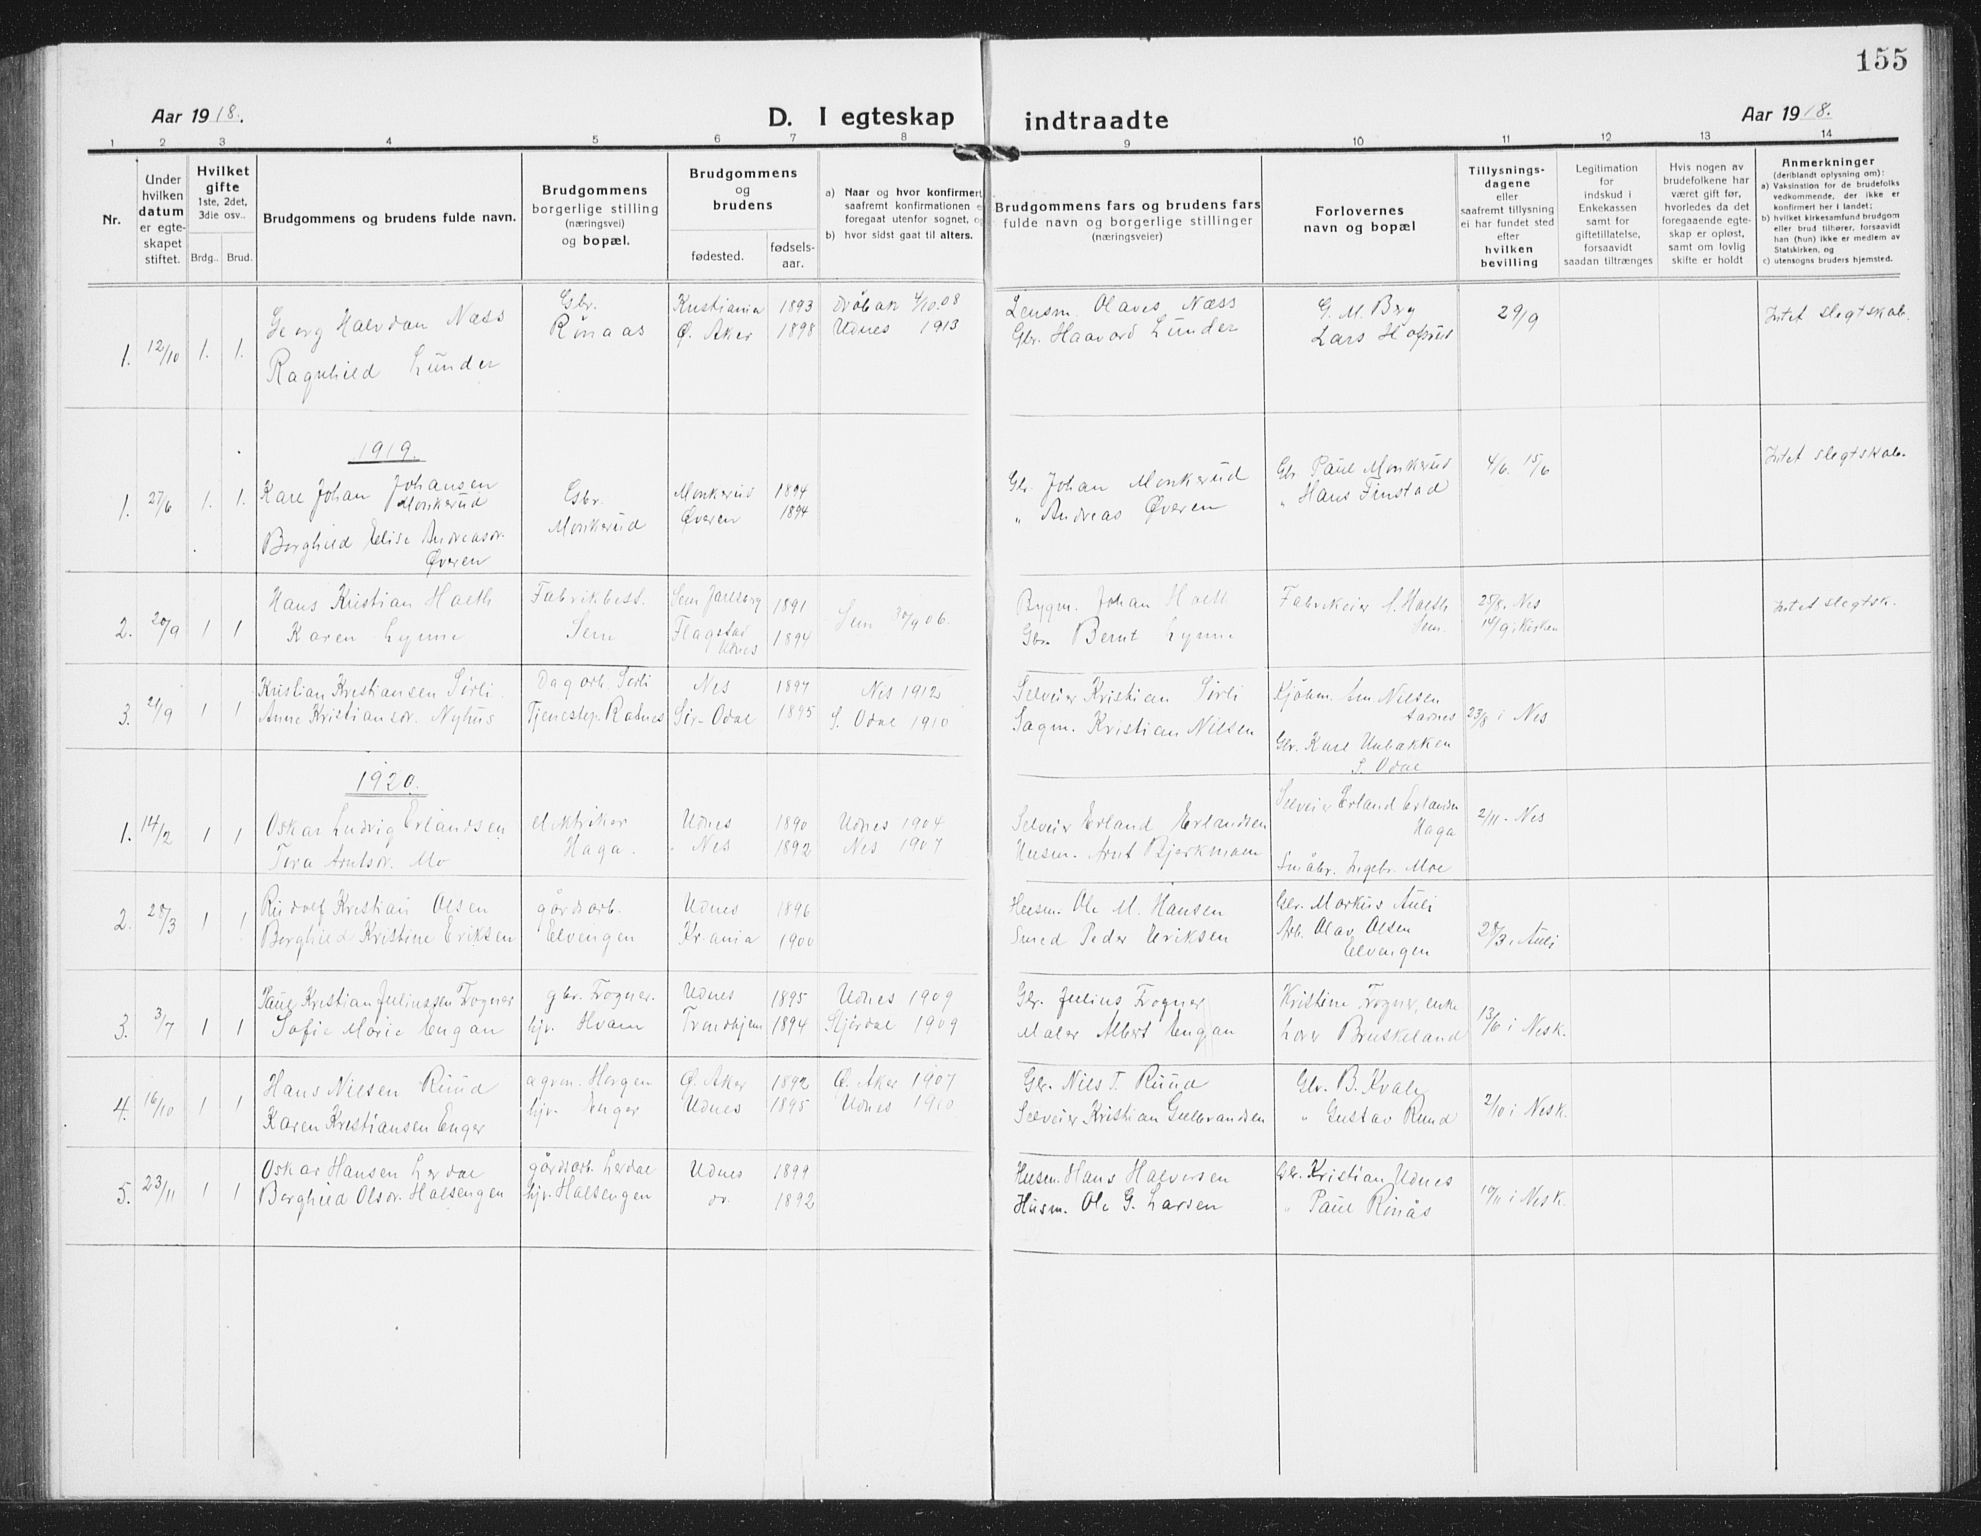 155
Aar 1918. D. I egteskap indtraadte Aar 1918.
1 2 3 4 5 6 7 8 9 10 11 12 13 14
Nr.
Under hvilken datum er egteskapet stiftet.
Hvilket gifte 1ste, 2det, 3die osv..
Brdg.. Brud.
Brudgommens og brudens fulde navn.
Brudgommens borgerlige stilling (næringsvei) og bopæl.
Brudgommens og brudens
fødested. fødsels-aar.
a) Naar og hvor konfirmert
saafremt konfirmationen
foregaat utenfor sognet,
b) hvor sidst gaat til alters.
Brudgommens fars og brudens fars
fulde navn og borgerlige stillinger
(næringsveier)
Forlovernes
navn og bopæl
Tillysnings-
dagene
eller
saafremt tillysning
ei har fundet sted
efter
hvilken
bevilling
Legitimation
for
indskud i
Enkekassen
samt for
giftetillatelse,
forsaavidt
saadan tiltrænges
Hvis nogen av
brudefolkene har
været gift før,
hvorledes da det
foregaaende egte-
skap er opløst,
samt om lovlig
skifte er holdt
Anmerkninger
(deriblandt oplysning om):
a) Vaksinstion for de brudefolks
vedkommende, der ikke er
konfirmert her i landet;
b) hvilket kirkesamfund brudgom
eller brud tilhører, forsaavidt
han (hun) ikke er medlem av
Statskirken, og
c) utensogns bruders hjemsted.
1. 12/10 1. 1. Georg Halvdan Næss Gbr. Kristiania 1893 Drøbak 4/10.08 Lensm. Olaves Næss G. M. Berg 29/9 Intet slegtskab.
Ragnhild Lunder Rønaas Ø. Aker 1898 Udnes 1913 Gbr. Haavard Lunder Lars Hofsrud
1919.
1. 27/6 1. 1. Karl Johan Johansen Monkerud Gbr. Monkerud 1894 Gbr. Johan Monkerud Gbr. Paul Monkerud 4/6. 15/6 Intet slegtskab.
Borghild Elise Andreasdr. Øveren Monkerud Øveren 1894 " Andreas Øveren " Hans Finstad
2. 20/9 1 1 Hans Kristian Holth Fabrikbest. Sem Jarlsberg 1891 Sem 30/9 06. Bygm. Johan Holth Fabrikeier Holth Sem. 25/8. Nes Intet slegtsk.
Karen Lynne Sem Flagstad Udnes 1894 Gbr. Bernt Lynne 14/9 i Kirken
3. 21/9 1 1 Kristian Kristiansen Sørli Dagarb. Sørli Nes 1897 Nes 1912 Selveier Kristian Sørli Kjøbm. Nielsen Aarnes 23/8 i Nes
Anne Kristiansdr. Nyhus Tjenestep. Raanes Sør-Odal 1895 S. Odal 1910 Sagm. Kristian Nilsen Gbr. Karl Unbakken S. Odal
1920.
1. 14/2 1 1 Oskar Ludvig Erlandsen elektriker Udnes 1890 Udnes 1904 Selveier Erland Erlandsen Selveier Erland Erlandsen Haga 2/11 - Nes
Tora Arntsdr. Mo Haga. Nes 1892 Nes 1907 Husm. Arnt Bjerkmoen Småbr. Ingebr. Moe
2. 28/3 1 1 Rudolf Kristian Olsen gårdsarb. Udnes 1896 Husm. Ole M. Hansen Gbr. Markus Auli 28/3 i Auli
Borghild Kristine Eriksen Elvengen Kr.ania 1900 Smed Peder Eriksen Arb. Olav Olsen Elvengen
3. 3/7 1 1 Paul Kristian Juliussen Frogner gbr. Frogner. Udnes 1895 Udnes 1909 Gbr. Julius Frogner Kristine Frogner, enke 13/6 i Nesk.
Sofie Marie Engan hjv. Hvam Trondhjem 1894 Stjørdal 1909 Maler Albert Engan Lærer Bruskeland
4. 16/10 1 1 Hans Nielsen Ruud agron. Horgen Ø. Aker 1892 Ø. Aker 1907 Gbr. Nils T. Ruud Gbr. B. Kvale 2/10 i Nesk.
Karen Kristiansen Enger hjv. Enger Udnes 1895 Udnes 1910 Selveier Kristian Gulbrandsen " Gustav Ruud
5. 23/11 1 1 Oskar Hansen Lerdal gårdsarb. Lerdal Udnes 1899 Husm. Hans Halvorsen Gbr. Kristian Udnes 10/11 i Nesk.
Borghild Olsdr. Halsengen hjv. Halsengen do. 1892 Husm. Ole G. Larsen " Paul Rønås